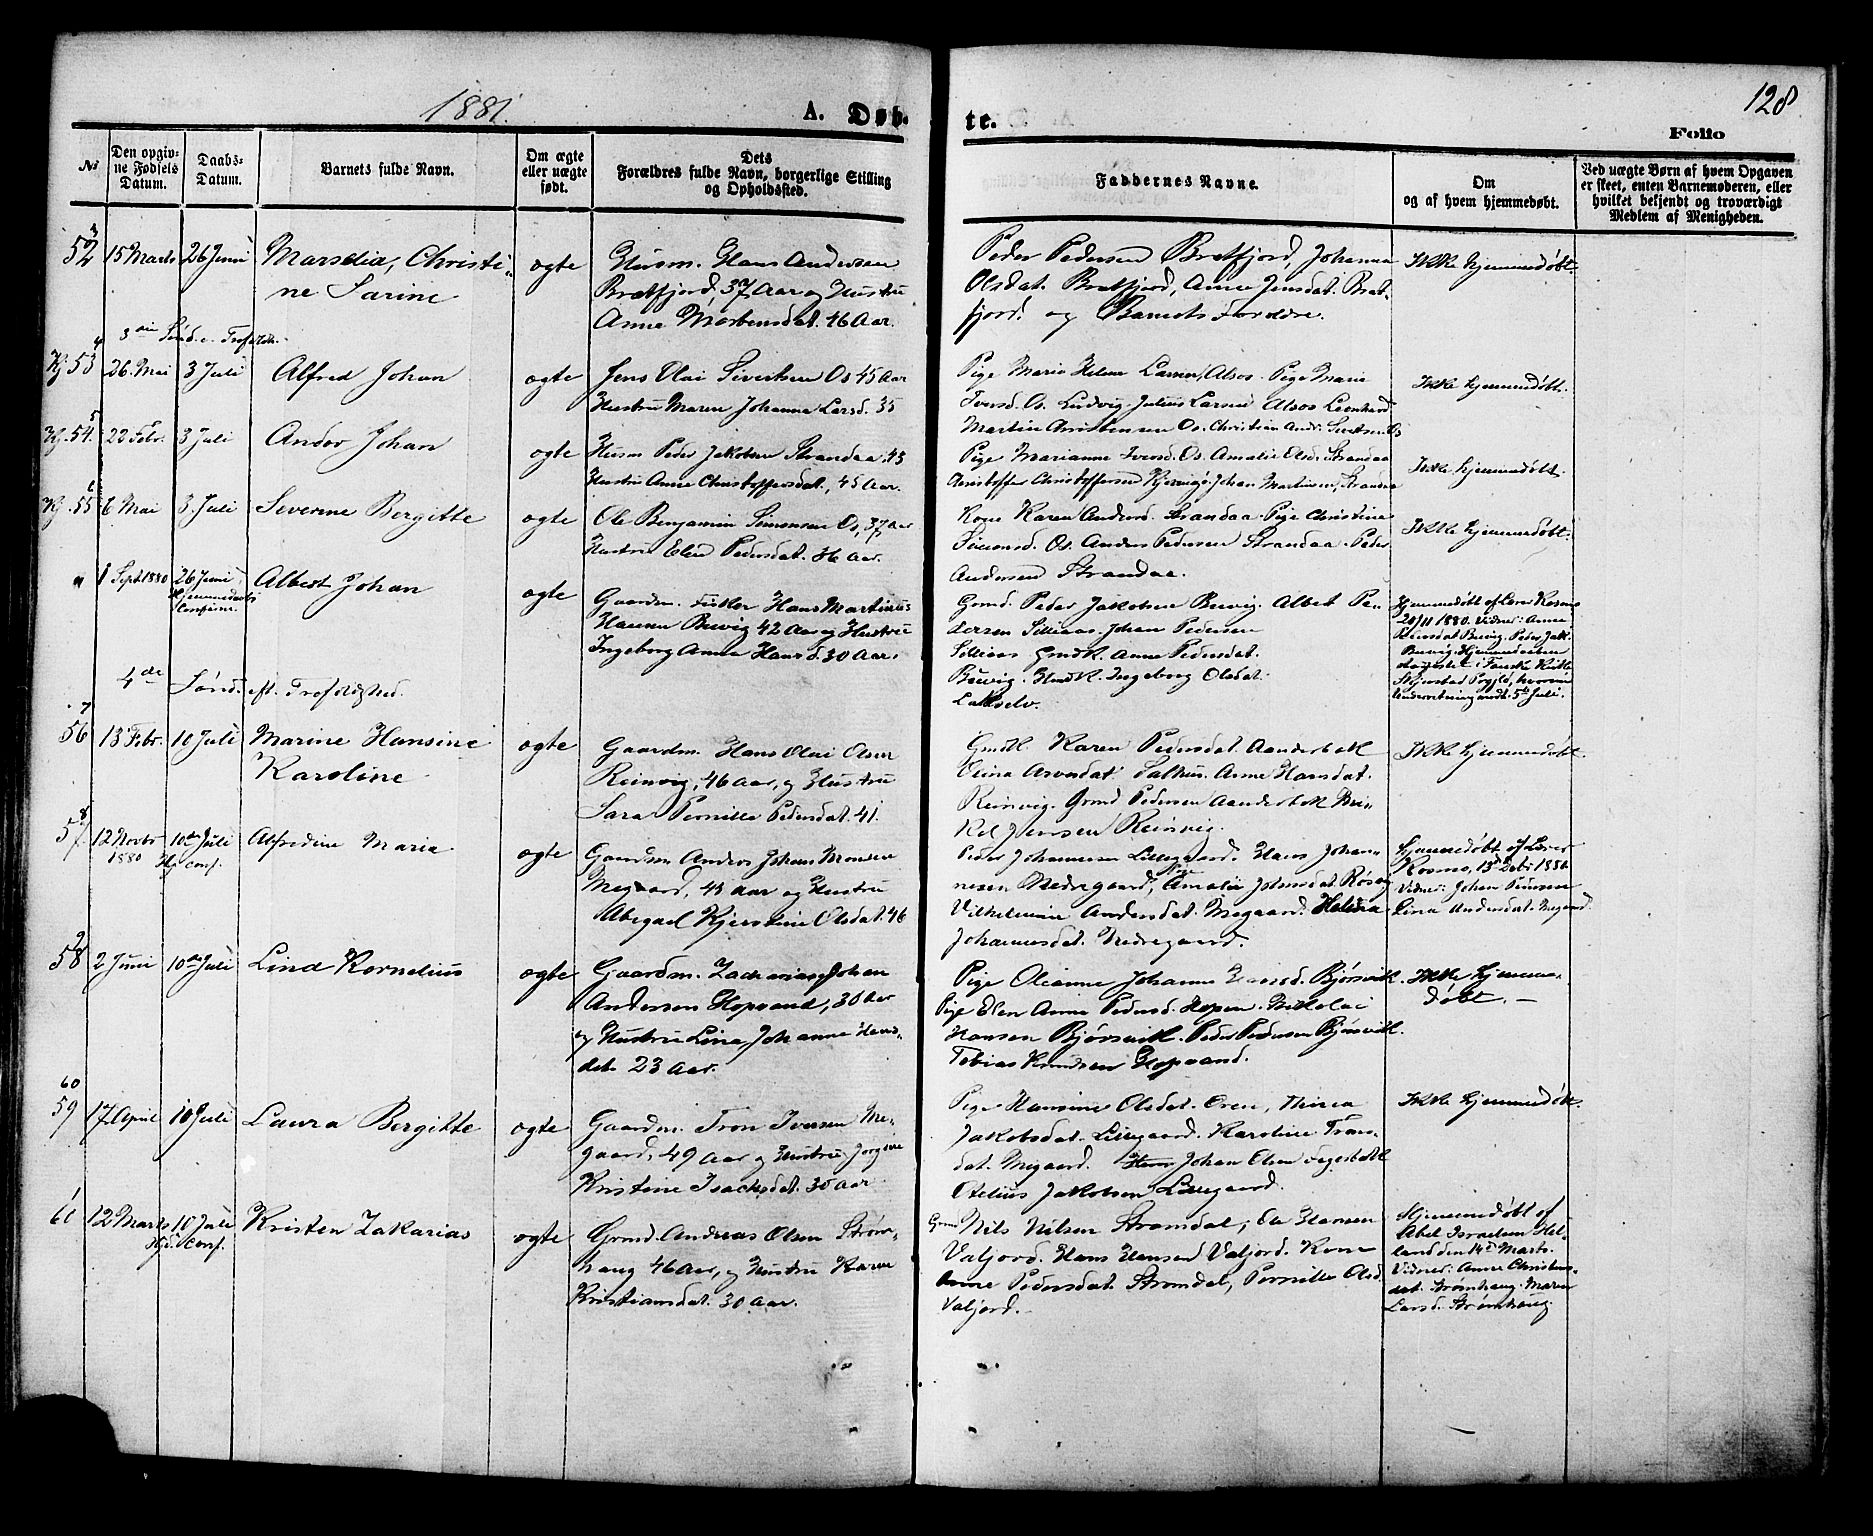 1881.
A. Døb-
te.
128
Folio
No
Den opgiv-
ne Fødsels
Datum.
Daabs-
Datum.
Barnets fulde Navn.
Om ægte
eller uægte
født.
Dets
Forældres fulde Navn, borgerlige Stilling
og Opholdssted.
Faddernes Navne.
Om
og af hvem hjemmedøbt.
Ved uægte Børn af hvem Opgaven
er skeet, enten Barnemoderen, eller
hvilket bekjendt og troværdigt
Medlem af Menigheden.
3
52 15 Marts 26 Juni
Christi-
ne Sarine
ægte
Husm. Hans Andersen
Bratfjord, 37 Aar og Hustru
Anne Mortensdat. 46 Aar.
Peder Pedersen Bratfjord, Johanna
Olsdat. Bratfjord, Anne Jensdat. Brat-
fjord. og Barnets Forældre.
Ikke hjemmedøbt.
4
3die Sønd. e. Trefoldh.
Kj. 53 26. Mai 3 Juli Alfred Johan
ægte
Jens Olai Sivertsen Os 45 Aar
Hustru Maren Johanna Larsd. 35
Pige Marie Helene Larsen, Alsos. Pige Marie
Iversd. Os. Ludvig Julius Larsen Alsos Leonhard
Martin Christensen Os. Christian Andr. Sivertsen Os
Ikke hjemmedøbt.
5
Kj. 54. 22 Febr. 3 Juli Andor Johan
ægte
Husm Peder Jakobsen Strandaa. 43
Hustru Anne Christoffersdat., 45 Aar.
Pige Marianne Iversd. Os. Amalie Olsd. Strandaa
Christoffer Christoffersen Kjerringø. Johan Martinsen, Strandaa
Ikke hjemmedøbt.
6
Kj. 55 6 Mai 3. Juli Severine Bergitte
ægte
Ole Benjamin Simonsen Os, 37 Aar
Hustru Elen Pedersdat. 36 Aar.
Kone Karen Andersd. Strandaa. Pige Christine
Simonsd. Os. Anders Pedersen Strandaa. Peder
Andersen Strandaa.
Ikke hjemmedøbt.
" 1 Sept 1880 26 Juni
Albert Johan
ægte
Gaardm. Fisker Hans Martinus
Hansen Buvig 42 Aar og Hustru
Ingeborg Anna Hansd. 30 Aar.
Grmd. Peder Jakobsen Buvig. Albert Pe-
dersen Johan Pedersen
Grmdk. Anne Pedersdat.
Buvig. Grmdk. Ingeborg Olsdat.
Lakselv.
Hjemmedøbt af Lærer Rosmo
1880. Vidner: Anne
Buvig. Peder Jak.
Buvig.
4de Sønd. eft. Trefoldighed.
7
56 13 Febr. 10 Juli Marine Hansine
Karoline
ægte
Gaardm. Hans Olai Olsen
Reinvig, 46 Aar, og Hustru
Sara Pernille Pedersdat. 41.
Grmdk. Karen Pedersdat. Aanderbakk
Anne Hansdat.
Reinvig. Grmd Pedersen Aanderbakk
Jensen Reinvig.
Ikke hjemmedøbt.
8
57 12 Novbr 10de Juli Alfredine Maria
1880 Hj. conf.
ægte
Gaardm Anders Johan Monsen
Megaard, 43 Aar og Hustru
Abegael Kjerstine Olsdat. 46
Peder Johannesen Lillegaard. Hans Johan-
nesen Nedregaard, Amalie Johnsdat. Røsvig
Vilhelmine Andersdat. Megaard. Helena
Johannesdat. Nedregaard.
Hjemmedøbt af Lærer
Rosmo,
Vidner: Johan Pedersen
Lina Andersdat. Megaard.
9
58 2 Juni 10de Juli Lind Kornelius
ægte
Gaardm. Zacharias Johan
Andersen Hopvand, 30 Aar
og Hustru Lina Johanne Hans-
datr 23 Aar.
Pige Oleanne Johanne Bjørsvik.
Pige Elen Anne Pedersd. Hopen. Nikolai
Hansen Bjørsvik. Peder Pedersen Bjørsvik.
Tobias Knudsen Hopvand.
Ikke hjemme-
døbt. —
60
59 17. April 10 Juli Laura Bergitte
ægte
Gaardm. Tron Iversen Me-
gaard, 49 Aar og Hustru Jorgine
Kristine Isachsdat. 30 Aar.
Pige Hansine Olsdat. Ören,
Jakobsdat. Lillegaard. Karoline Trons-
dat. Megaard. Johan Olsen Fagerbakk
Otelius Jakobsen Lillegaard.
Ikke hjemmedøbt.
61 12 Marts 10 Juli Kristen Zakarias
Hjd. Conf.
ægte
Grmd. Andreas Olsen Strøm-
haug 46 Aar, og Hustru Karen
Kristiansdat. 30 Aar.
Grmd Nils Nilsen Strømdal, Ole Hansen
Valjord. Hans Hansen Valjord. Kone
Anne Pedersdat. Strømdal, Pernille Olsd.
Valjord. —
Hjemmedøbt af
Abel Israelsen Hel-
land den 14de Marts.
Vidner: Anne Christens-
dat. Strømhaug. Maren
Larsd. Strømhaug.